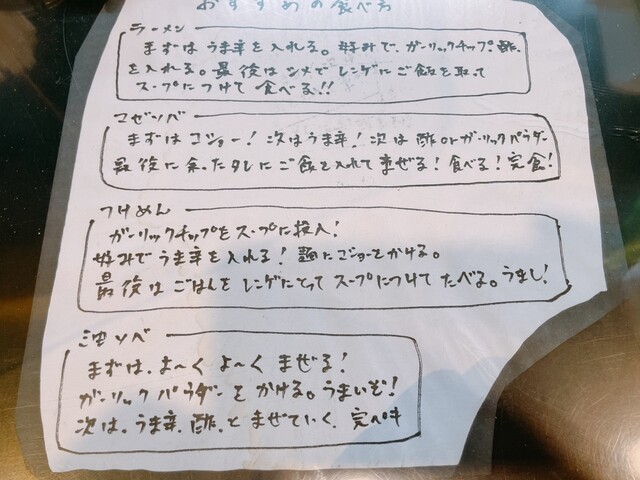 おすすめの食べ方
ラーメン
まずはうま辛を入れる。好みで、ガーリックチップ、酢
を入れる。最後はシメでレンゲにご飯を取って
スープにつけて食べる!!
マゼソバ
まずはコショー!次はうま辛!次は酢orガーリックパウダー
最後に余ったタレにご飯を入れてまぜる!食べる!完食!
つけめん
ガーリックチップをスープに投入!
好みでうま辛を入れる!麺にコショーをかける。
最後はごはんをレンゲにとってスープにつけてたべる。うまし!
油ソバ
まずは、よ〜くよ〜くまぜる!
ガーリックパウダーをかける。うまいぞ!
次は、うま辛、酢、とまぜていく、完ペキ